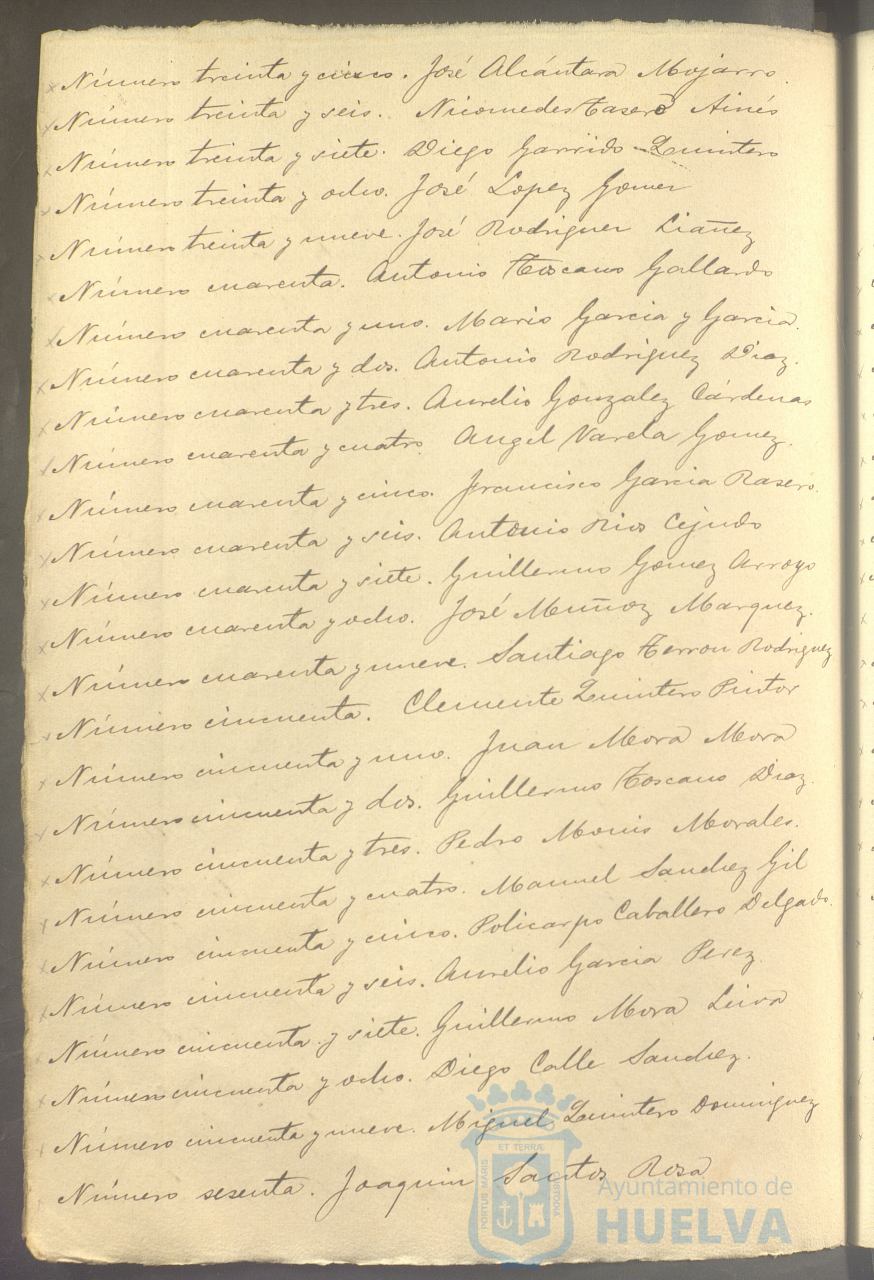 Número treinta y cinco. José Alcántara Mojarro.
Número treinta y seis. Nicomedes Tasero Ainés
Número treinta y siete. Diego Garrido Quintero
Número treinta y ocho. José Lopez Gomer
Número treinta y nueve. José Rodriguer Liañez
Número cuarenta. Antonio Toscano Gallardo
Número cuarenta y uno. Mario Garcia y Garcia.
Número cuarenta y dos. Antonio Rodriguez Diaz.
Número cuarenta y tres. Aurelio Gonzalez Cárdenas
Número cuarenta y cuatro. Angel Varela Gomez.
Número cuarenta y cinco. Francisco Garcia Rasero.
Número cuarenta y seis. Antonio Rios Cejudo
Número cuarenta y siete. Guillermo Gomez Arroyo
Número cuarenta y ocho. José Muñoz Marquez.
Número cuarenta y nueve. Santiago Terron Rodriguez
Número cincuenta. Clemente Quintero Pintor
Número cincuenta y uno. Juan Mora Mora
Número cincuenta y dos. Guillermo Toscano Diaz.
Número cincuenta y tres. Pedro Monis Morales.
Número cincuenta y cuatro. Manuel Sanchez Gil
Número cincuenta y cinco. Policarpo Caballero Delgado.
Número cincuenta y seis. Aurelio Garcia Perez.
Número cincuenta y siete. Guillermo Mora Leiva
Número cincuenta y ocho. Diego Calle Sanchez.
Número cincuenta y nueve. Miguel Quintero Dominguez
Número sesenta. Joaquin Santos Rosa
PORTUS MARIS ET TERRÆ CUSTODIA
Ayuntamiento de
HUELVA